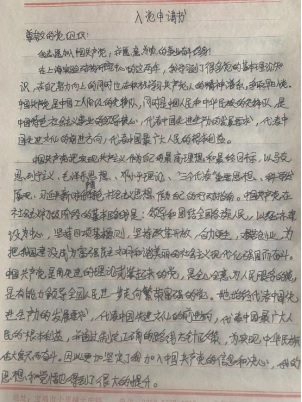 入党申请书
尊敬的党组织：
我志愿加入中国共产党，愿意为共产主义事业奋斗终身！
在上海 这两年，我学习了很多党的基本理论知
识，在努力向上的同时也在积极学习共产党人的精神
中国共产党是中国工人阶级的先锋队，同时是中国人民和中华民族的先锋队，是
中国特色社会主义事业的领导核心，代表中国先进生产力的发展要求，代表
中国先进文化的前进方向，代表中国最广大人民的根本利益。
中国共产党把实现共产主义作为自己的最高理想和最终目标，以马克
思列宁主义、毛泽东思想、邓小平理论、“三个代表”重要思想、科学发
展观、习近平新时代中国特色社会主义思想作为自己的行动指南。中国共产党在
社会主义初级阶段的基本路线是：领导和团结全国各族人民，以经济建
设为中心，坚持四项基本原则，坚持改革开放，自力更生，艰苦创业，为
把我国建设成为富强民主文明和谐美丽的社会主义现代化强国而奋斗。
中国共产党是用先进的理论武装起来的党，是全心全意为人民服务的党，
是有能力领导全国人民进一步走向繁荣富强的党。她始终代表中国先
进生产力的发展要求，代表中国先进文化的前进方向，代表中国最广大人
民的根本利益，并通过制定正确的路线方针政策，为实现中华民族
伟大复兴而奋斗。因此更加坚定了我加入中国共产党的信息和决心，我的
思想和觉悟也得到了很大的提升。